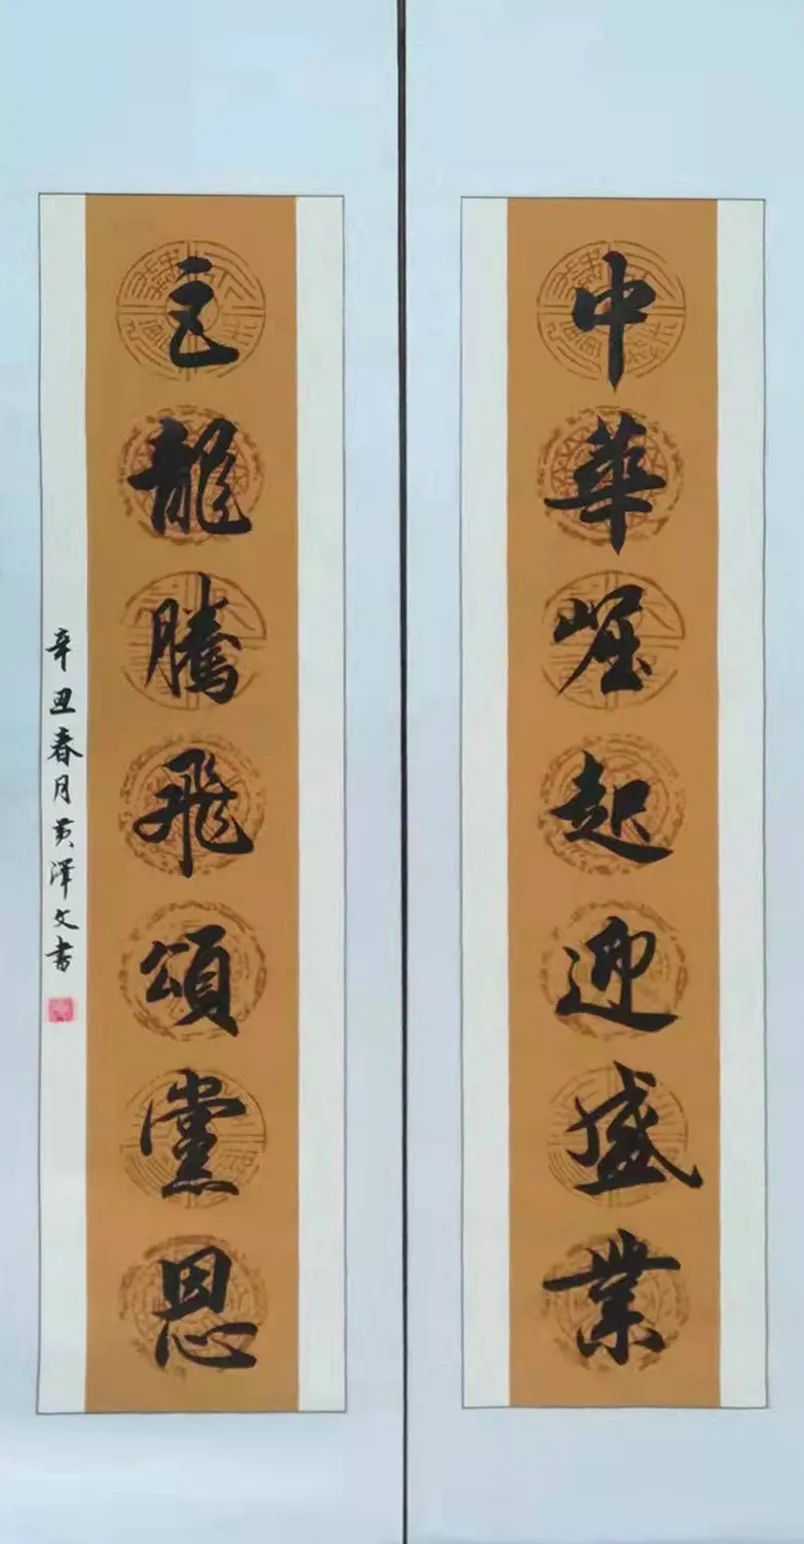 中華崛起迎盛業
巨龍騰飛頌黨恩
辛丑春月黄澤文書